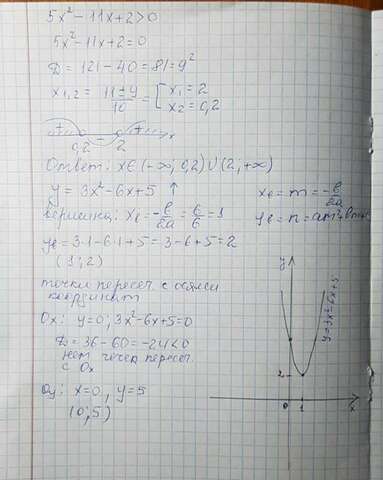 5x² - 11x + 2 > 0
5x² - 11x + 2 = 0
D = 121 - 40 = 81 = 9²
x₁,₂ = (11 ± 9)/10 = [ x₁ = 2
x₂ = 0,2
+ - +
0,2 2 x
Ответ: x ∈ (-∞; 0,2) ∪ (2, +∞)
y = 3x² - 6x + 5 ↑
xв = m = -в/2a
вершина: xв = -в/2a = 6/6 = 1
yв = n = am² + вm + c
yв = 3·1 - 6·1 + 5 = 3 - 6 + 5 = 2
(1; 2)
точки пересеч. с осями
координат
Ox: y = 0; 3x² - 6x + 5 = 0
D = 36 - 60 = -24 < 0
нет точек пересеч.
с Ox
Oy: x = 0, y = 5
(0; 5)
y
y = 3x² - 6x + 5
2
0 1 x